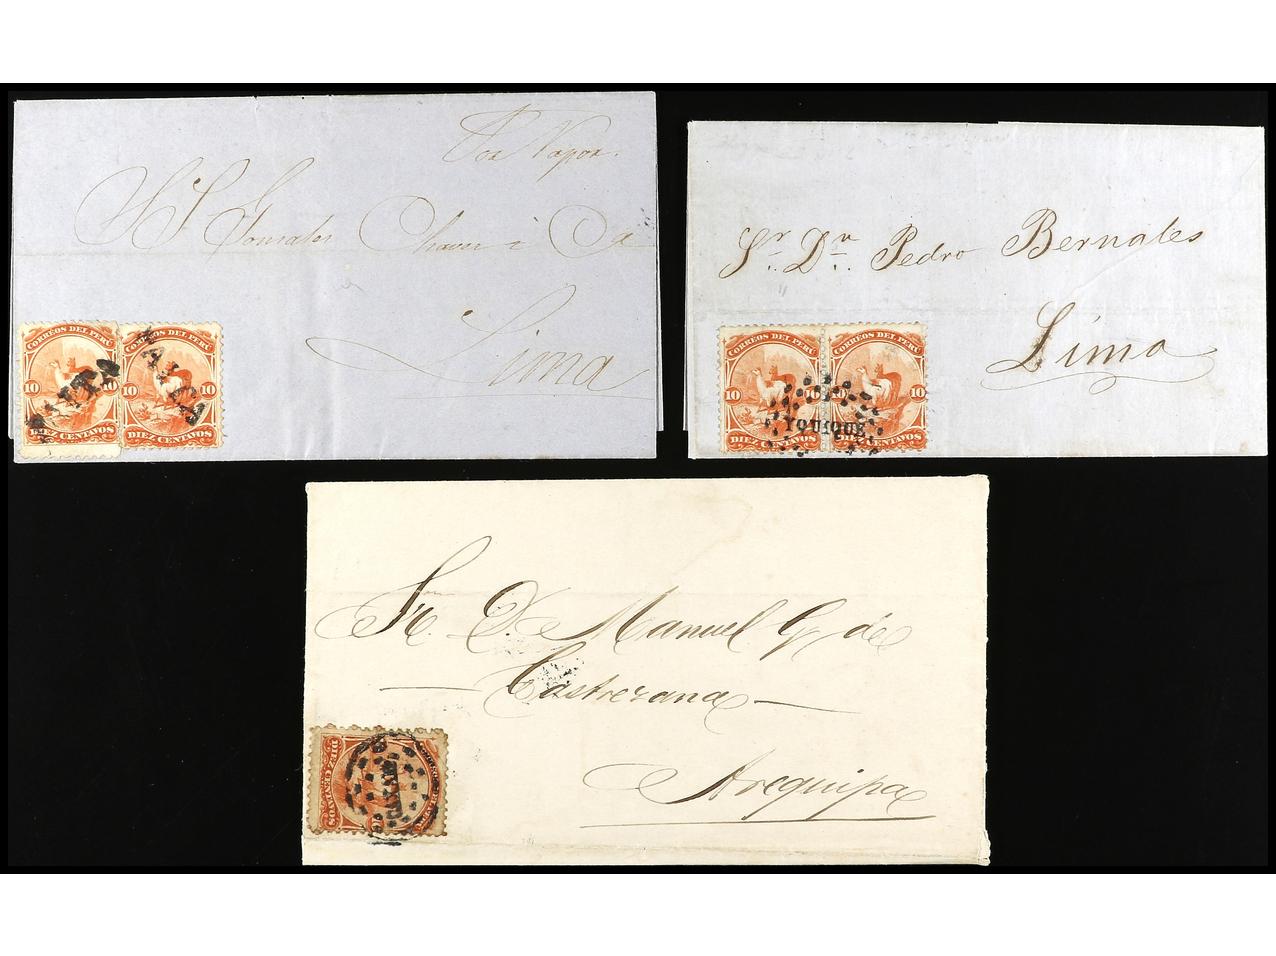 Por Vapor.
S S Gonzales Chavez i Ca
Lima
CORREOS DEL PERU
10 10
DIEZ CENTAVOS
PAITA
CORREOS DEL PERU
10 10
DIEZ CENTAVOS
PAITA
Sr. Dn. Pedro Bernales
Lima
CORREOS DEL PERU
10
DIEZ CENTAVOS
CORREOS DEL PERU
10
DIEZ CENTAVOS
YQUIQUE
Sr. D. Manuel G. de
Castresana
Arequipa
DIEZ CENTAVOS